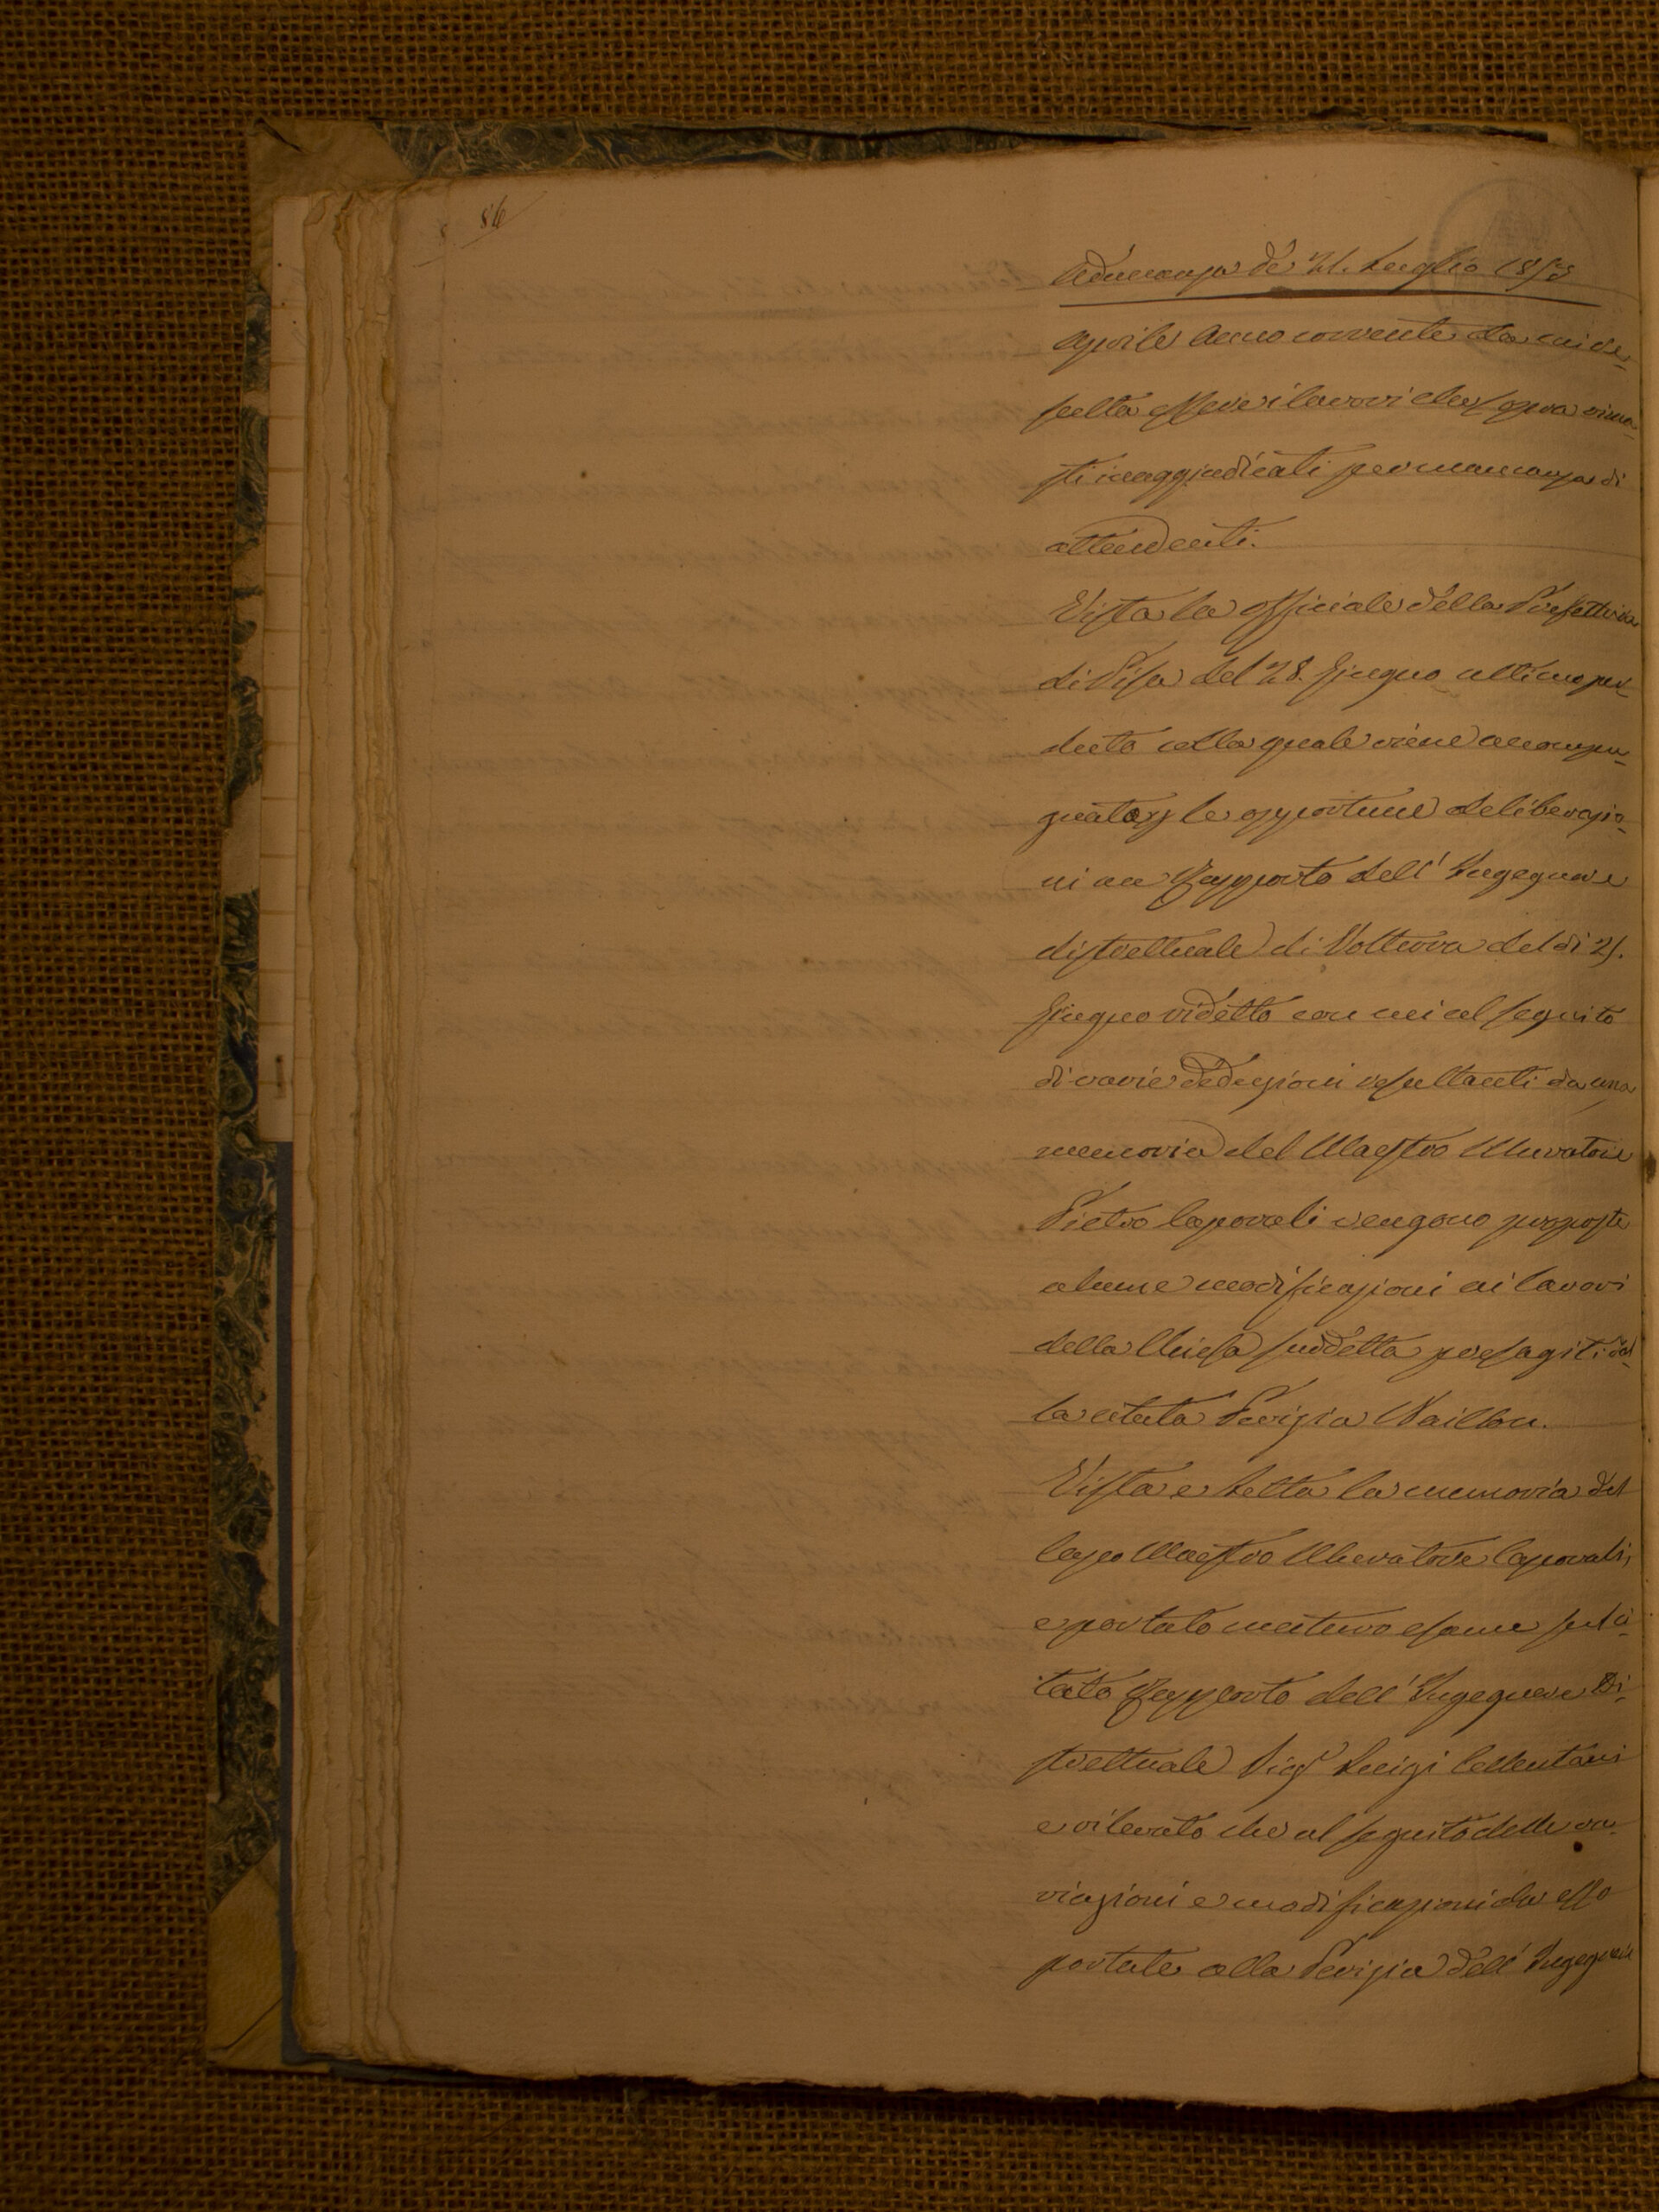 86
Adunanza de' 21. Luglio 1853
Aprile Anno corrente da cui re-
sulta essere i lavori che sopra rima-
sti inaggiudicati per mancanza di
attendenti.
Vista la officiale della Prefettura
di Pisa del 28. Giugno ultimo per-
duto colla quale viene accompa-
gnato le opportune deliberazio-
ni un Rapporto dell' Ingegnere
distrettuale di Volterra del dì 21.
Giugno ridetto con cui al seguito
di varie deduzioni resultanti da una
memoria del Maestro Muratore
Pietro Caporali vengono proposte
alcune modificazioni ai lavori
della Chiesa suddetta presagiti dal-
la citata Perizia
Vista e letta la memoria del
Capo Maestro Muratore Caporali,
e portato maturo esame sul ci-
tato Rapporto dell' Ingegnere Di-
strettuale Sigr Luigi
e rilevato che al seguito delle va-
riazioni e modificazioni da esso
portate alla Perizia dell' Ingegnere